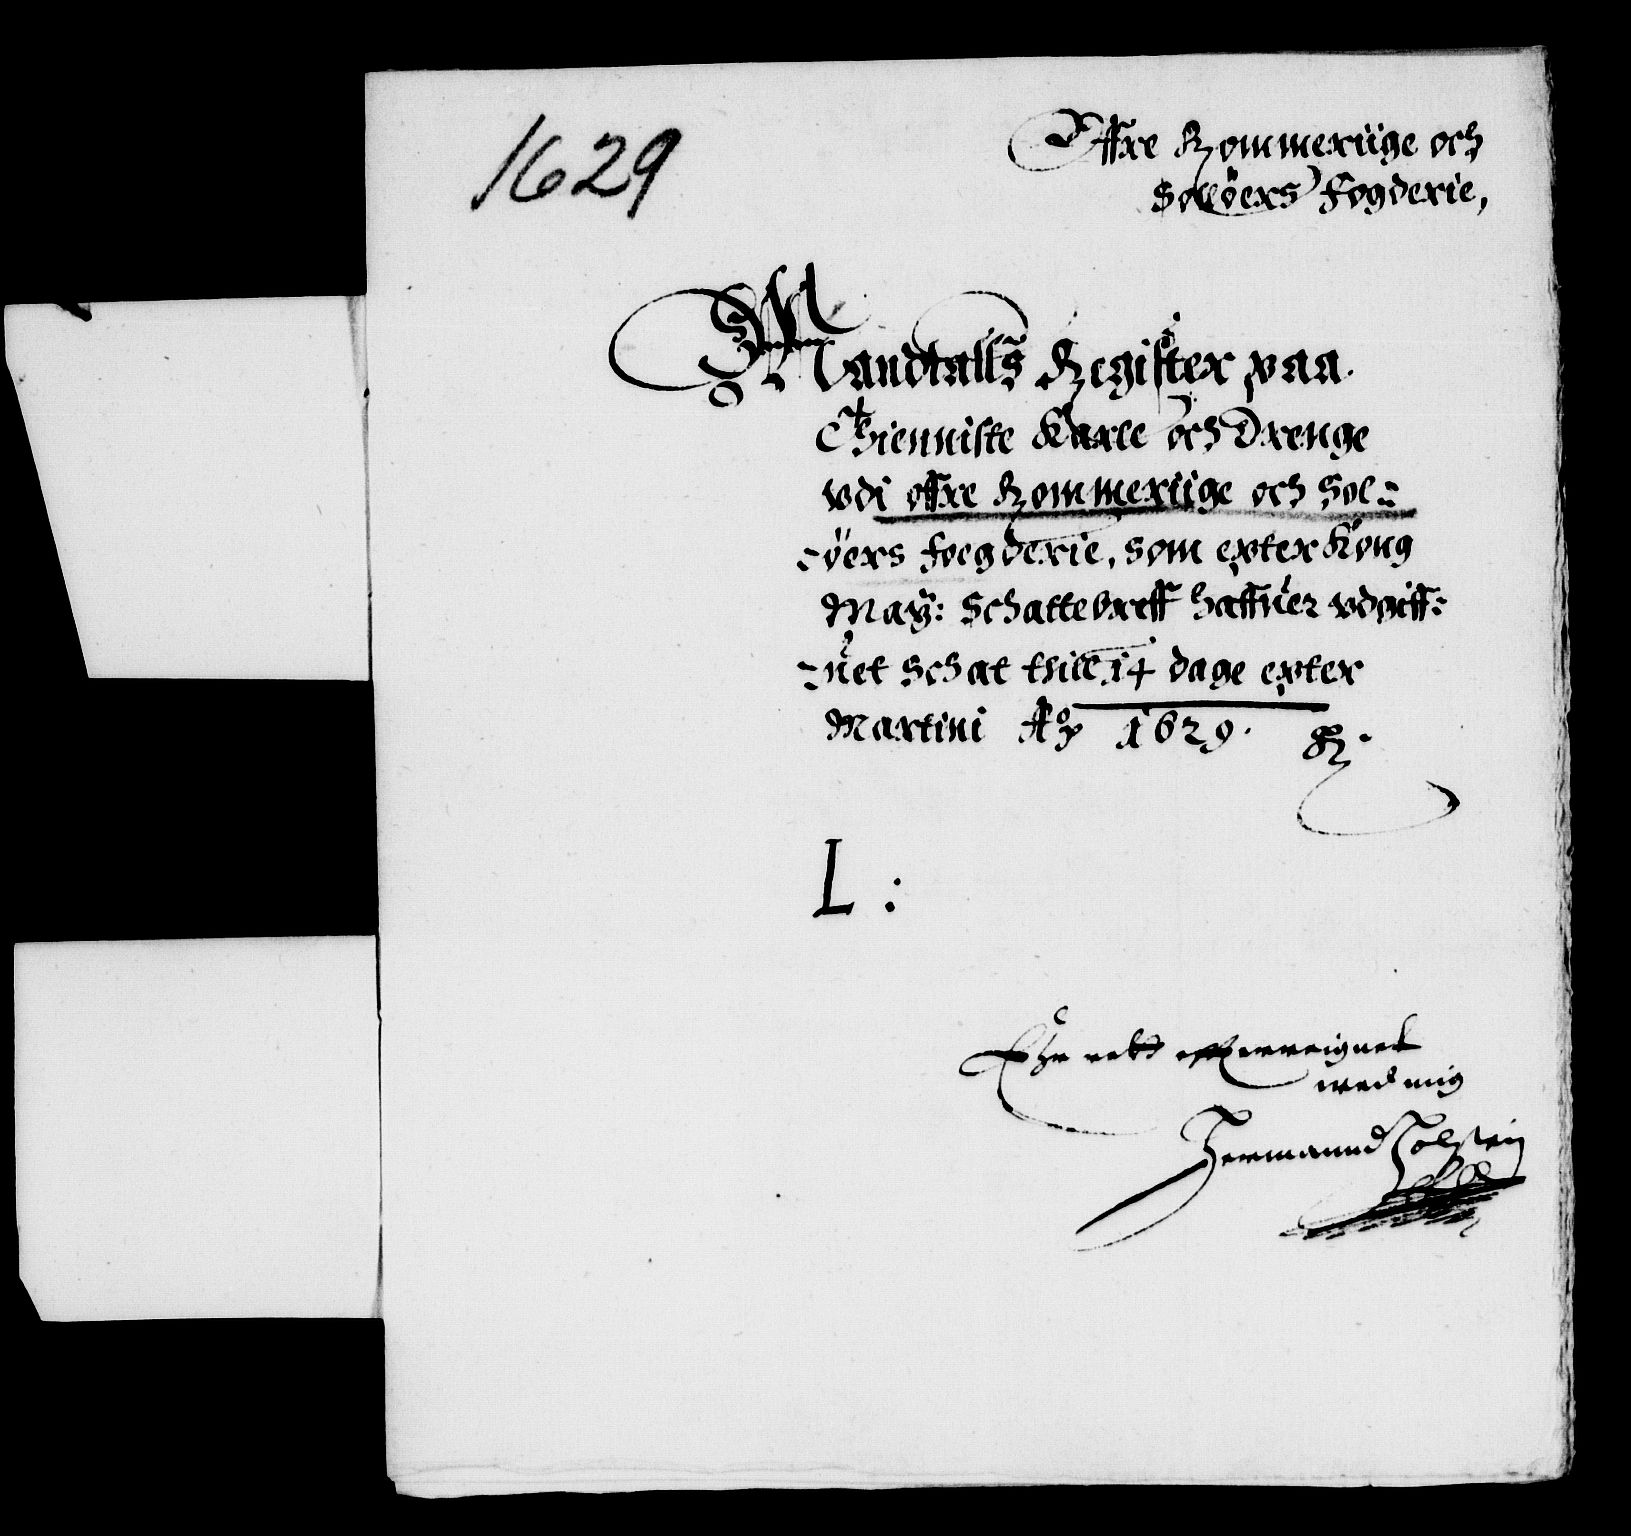 1629
Offre Rommeriige och
Solöers Fogderie,
Mandtalls Register paa
Thienniste Karle och Drenge
vdi offre Rommeriige och Sol-
-öers foegderie, som epter Kong
May: Schattebreff haffuer vdgiff-
-uet Schat thill 14 dage epter
Martini Ao 1629.
L:
med mig
Hermannd Holstein